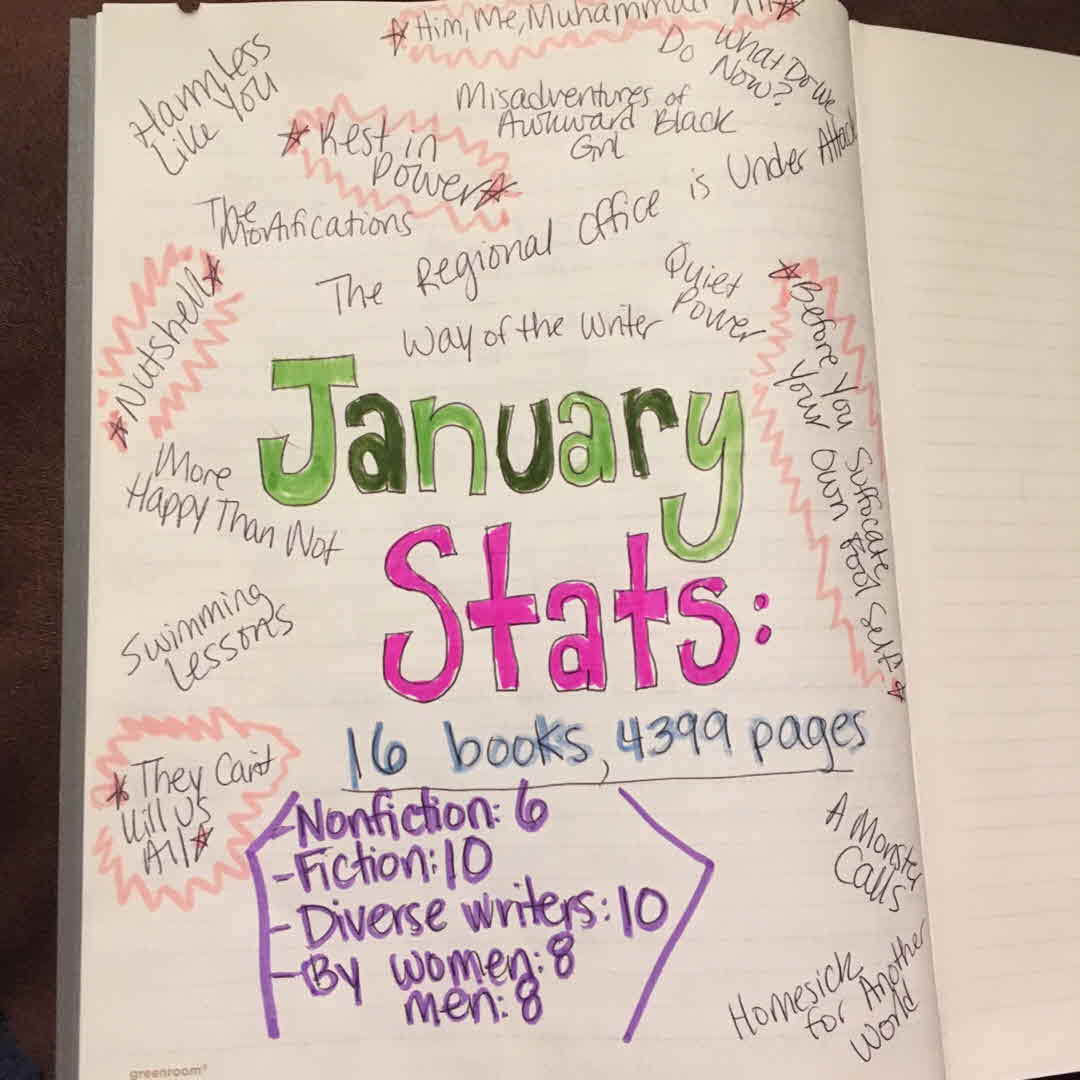 Him, Me, Muhammad Ali
Harmless
Like You
Do What Do We
Now?
Misadventures of
Awkward Black
Girl
Rest in
Power
The Regional Office is Under Attack
The
Mortifications
Nutshell
Quiet
Power
Way of the Writer
Before You Suffocate
Your Own Fool Self
January
More
Happy Than Not
Stats:
Swimming
Lessons
16 books, 4399 pages
They Can't
Kill Us
All
-Nonfiction: 6
-Fiction: 10
-Diverse writers: 10
-By women: 8
men: 8
A Monster
Calls
Homesick
for Another
World
greenroom®